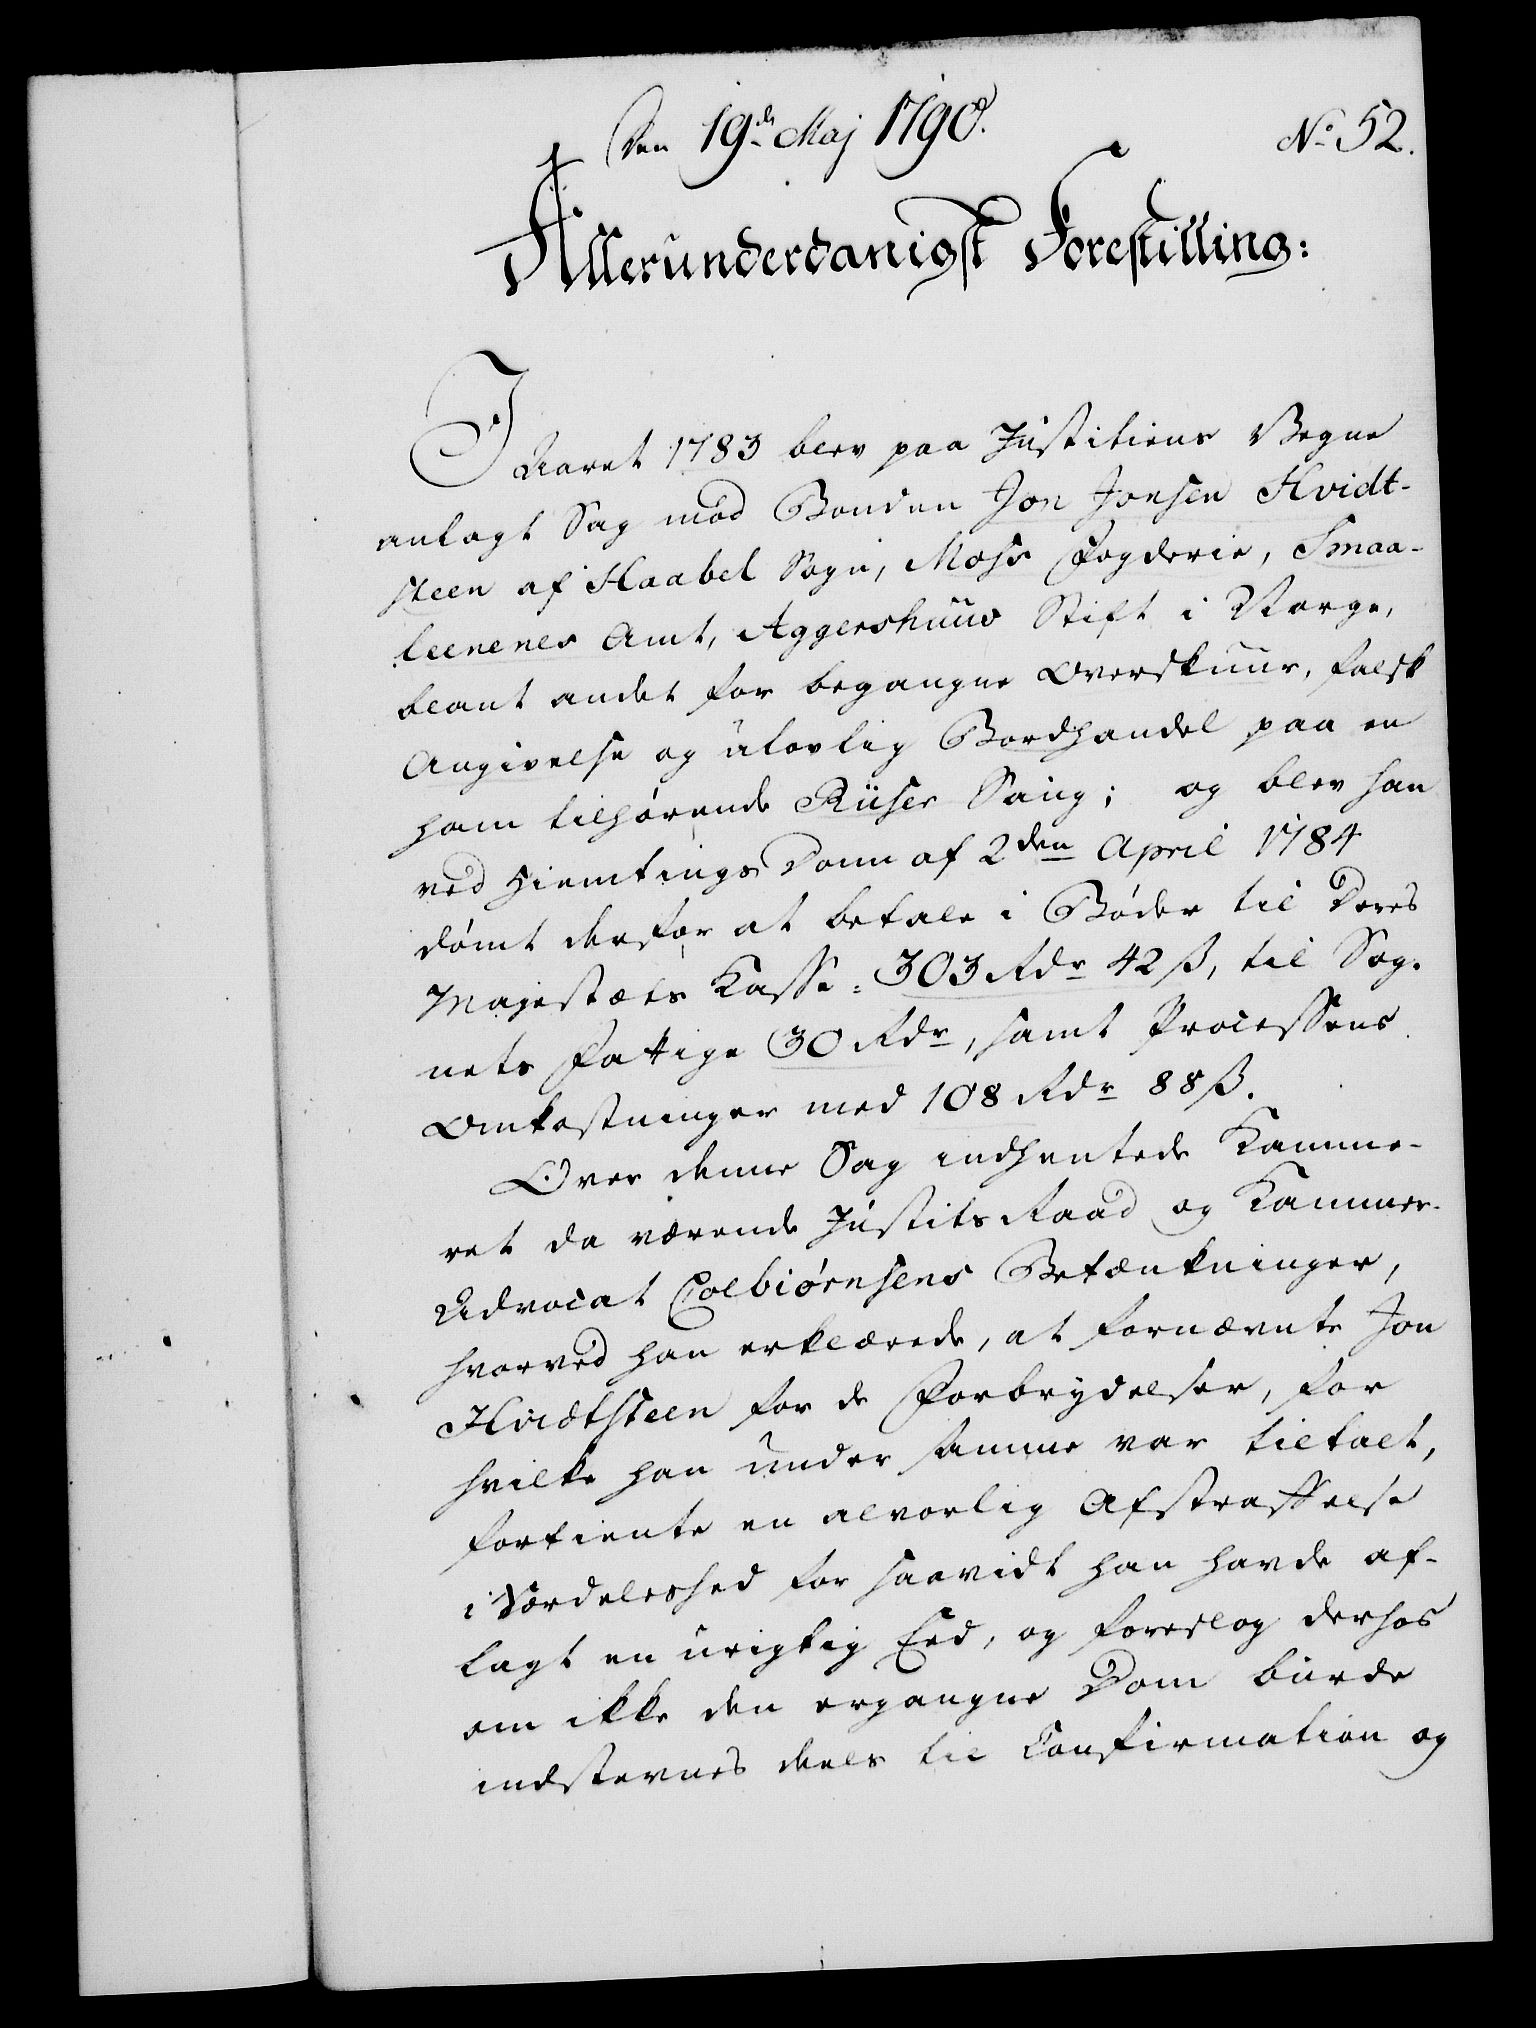 Den 19de Maj 1790.
No 52.
Allerunderdanigst Forestilling:
I Aaret 1783 blev paa Justitiens Vegne
anlagt Sag mod Bonden Jon Jonsen Hvidt-
steen af Haabel Sogn, Moss Fogderie, Smaa-
leenenes Amt, Aggershuus Stift i Norge,
blant andet for begangne Overskuur, falsk
Angivelse og ulovlig Bordhandel paa en
ham tilhørende Riiser Saug; og blev han
ved Hiemtings Dom af 2den April 1784
dømt derfor at betale i Bøder til Deres
Majestæts Kasse: 303 Rdr 42 ß, til Sog-
nets Fattige 30 Rdr, samt Processens
Omkostninger med 108 Rdr 88 ß.
Over denne Sag indhentede Kamme-
ret da værende Justits Raad og Kammer-
Advocat Colbiørnsens Betænkninger,
hvorved han erklærede, at fornævnte Jon
Hvidtsteen for de Forbrydelser, for
hvilke han under samme var tiltalt,
fortiente en alvorlig Afstraffelse
i Særdeleshed for saavidt han havde af-
lagt en urigtig Eed, og foreslog derhos
om ikke den ergangne Dom burde
indstevnes deels til Confirmation og